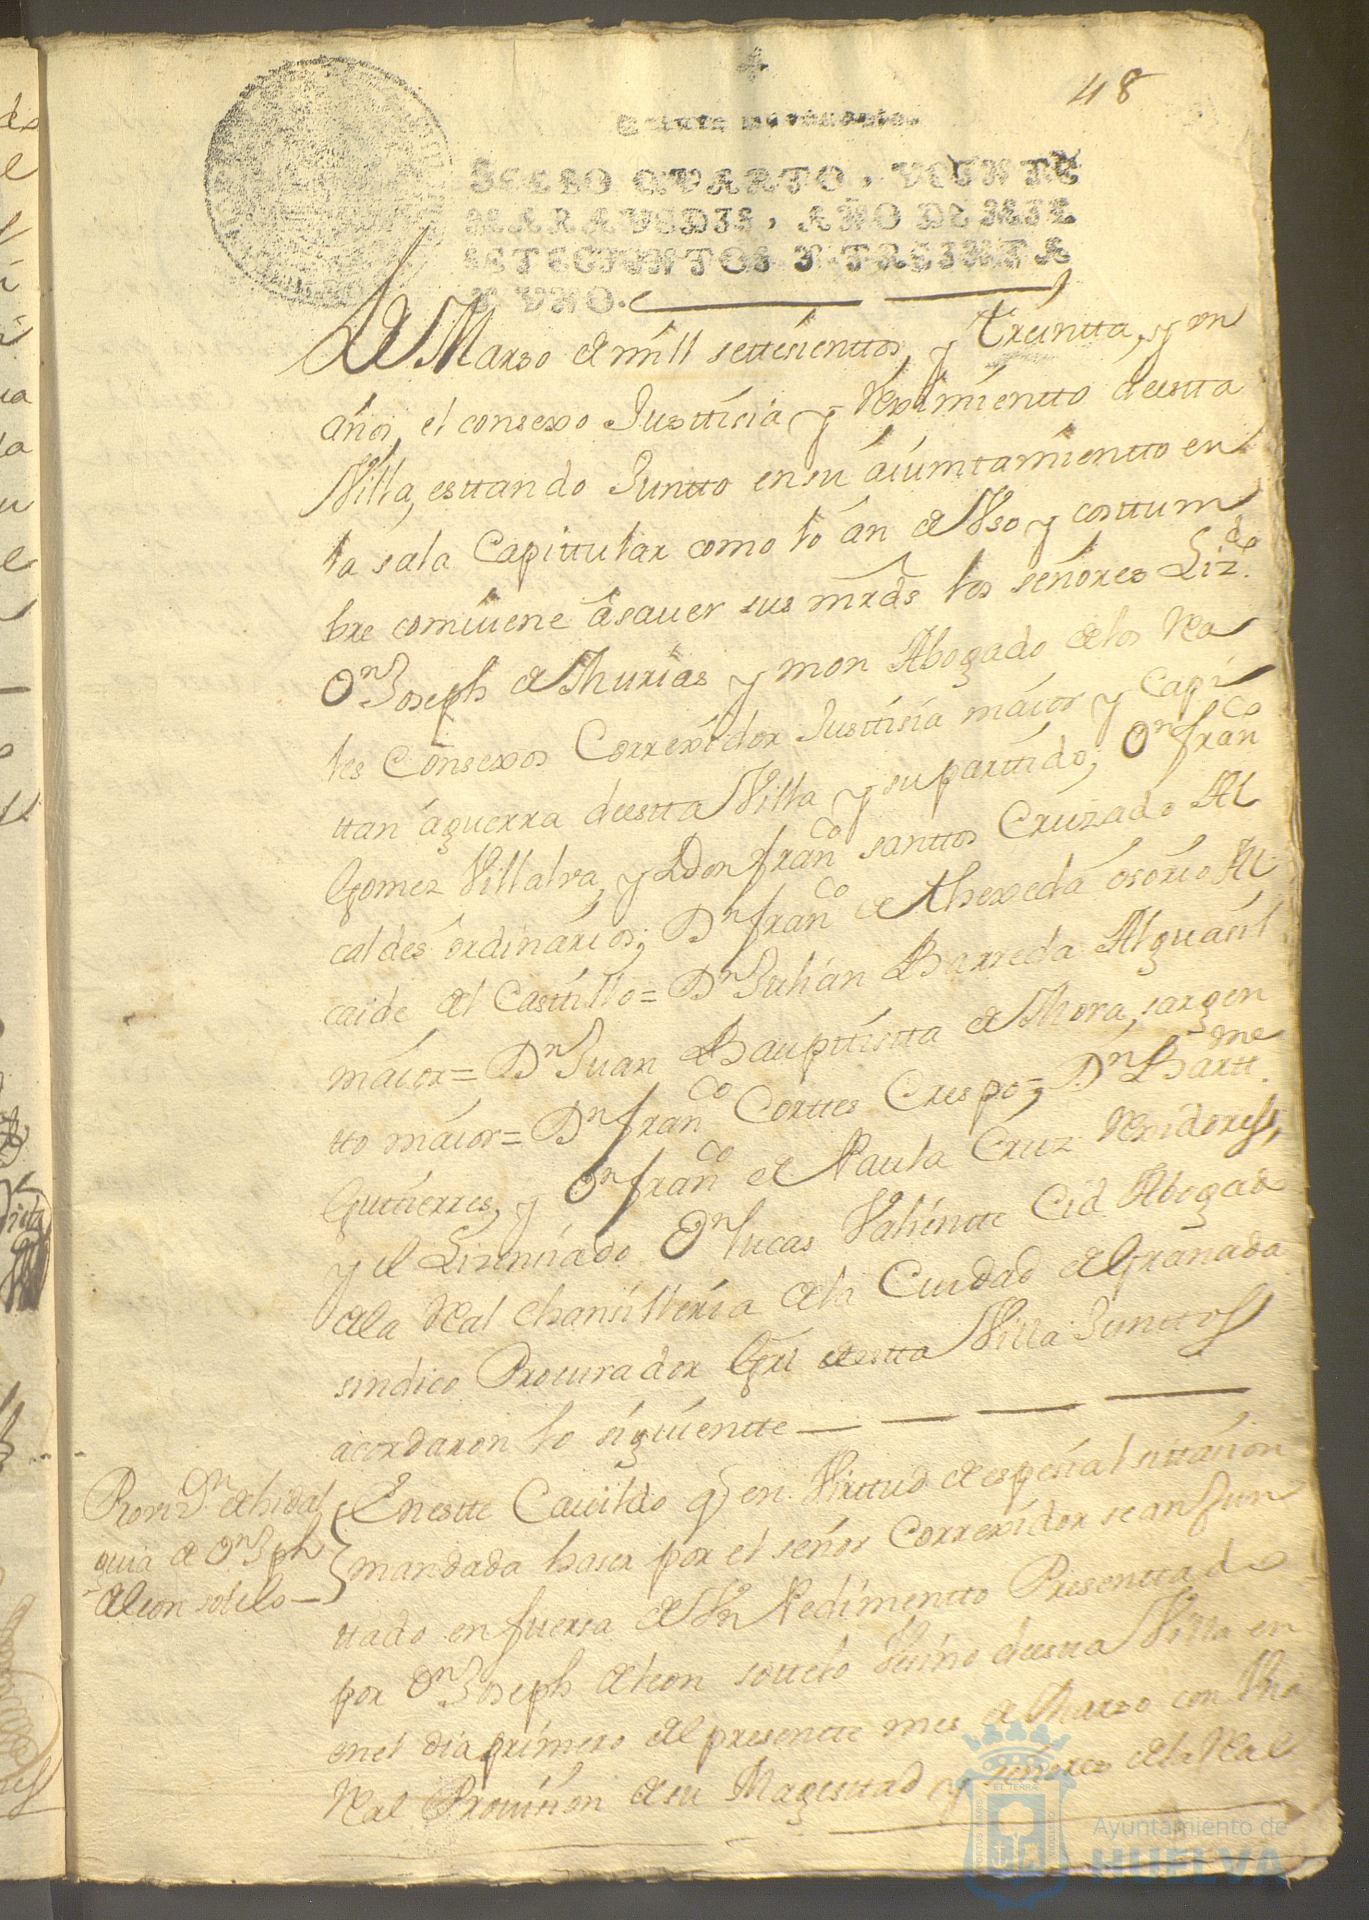 48
Veinte maravedis.
SELLO QVARTO, VEINTE
MARAVEDIS, AÑO DE MIL
SETECIENTOS Y TREINTA
Y VNO.
de Marzo de mill settesienttos, y treintta, y un
años, el consexo Justtisia y Reximientto deestta
Villa, esttando Juntto en su aiuntamientto en
la sala Capittular como lo án de Vso y costtum
bre comviene á sauer sus mrds los señores Lizdo.
Dn Joseph de Murias y mon Abogado de los Rea
les Consexos Correxidor Justtisia maior y Capi
ttan á guerra deestta Villa y su parttido; Dn franco
Gomez Villalva, y Don franco santtos Cruzado Al
caldes ordinarios; Dn franco de Thexeda osorio Al
caide del Casttillo= Dn Julián Barreda Alguasil
maior= Dn Juan Bauptistta de Mora, sargen
tto maior= Dn franco Corttes Crespo= Dn Barttme.
Guttierres, y Dn franco de Paula Cruz Rexidores,
y el Lizenciado Dn lucas Valientte Cid Abogado
de la Real chansilleria de la Ciudad de Granada
sindico Procurador Grl deestta Villa Junttos
acordaron lo siguientte
Provizn de hidal
guia de Dn Jph
de leon sotelo
En estte Cauildo q en Virttud de espesial sittasion
mandada haser por el señor Correxidor se an Jun
ttado en fuersa de Vn Pedimentto Presenttado
por Dn Joseph de leon sottelo Vesino deestta Villa en
en el dia primero del presentte mes de Marzo con Vna
Real Prouision de su Magesttad y señores de la Real
Ayuntamiento de
HUELVA